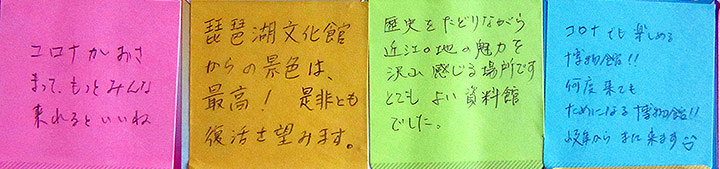 コロナがおさ
まって、もっとみんな
来れるといいね
琵琶湖文化館
からの景色は、
最高！ 是非とも
復活を望みます。
歴史をたどりながら
近江の地の魅力を
沢山感じる場所です
とてもよい資料館
でした。
コロナでも楽しめる
博物館!!
何度来ても
ためになる博物館!!
岐阜からまた来ます